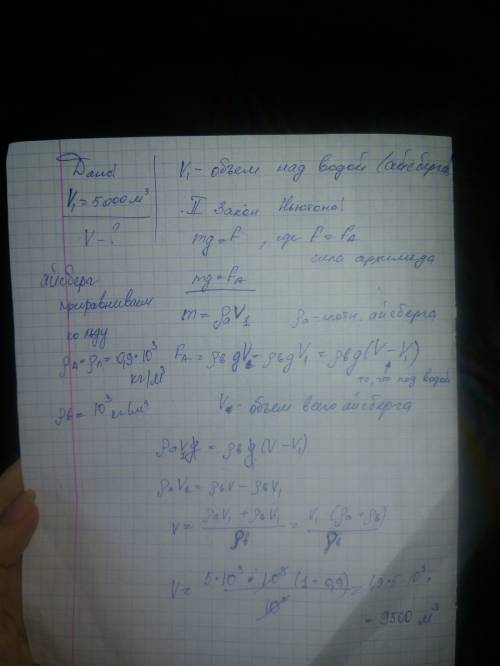 Дано!
V₁ = 5000 м³
V - ?
V₁ - объем над водой (айсберга)
II Закон Ньютона!
mg = F , где F = FА
сила архимеда
mg = FА
айсберг
приравниваем
ко льду
ρА = ρЛ = 0,9·10³
кг/м³
ρВ = 10³ кг/м³
m = ρаV₁ ρа - плотн. айсберга
FА = ρв gV - ρв gV₁ = ρвg(V - V₁)
то, что под водой
V - объем всего айсберга
ρаV₁g = ρв g (V - V₁)
ρаV₁ = ρвV - ρвV₁
V = (ρаV₁ + ρвV₁) / ρв = V₁ (ρа + ρв) / ρв
V = 5·10³ · 10³ (1 - 0,9) / 10³ = 1,9·5·10³ =
= 9500 м³